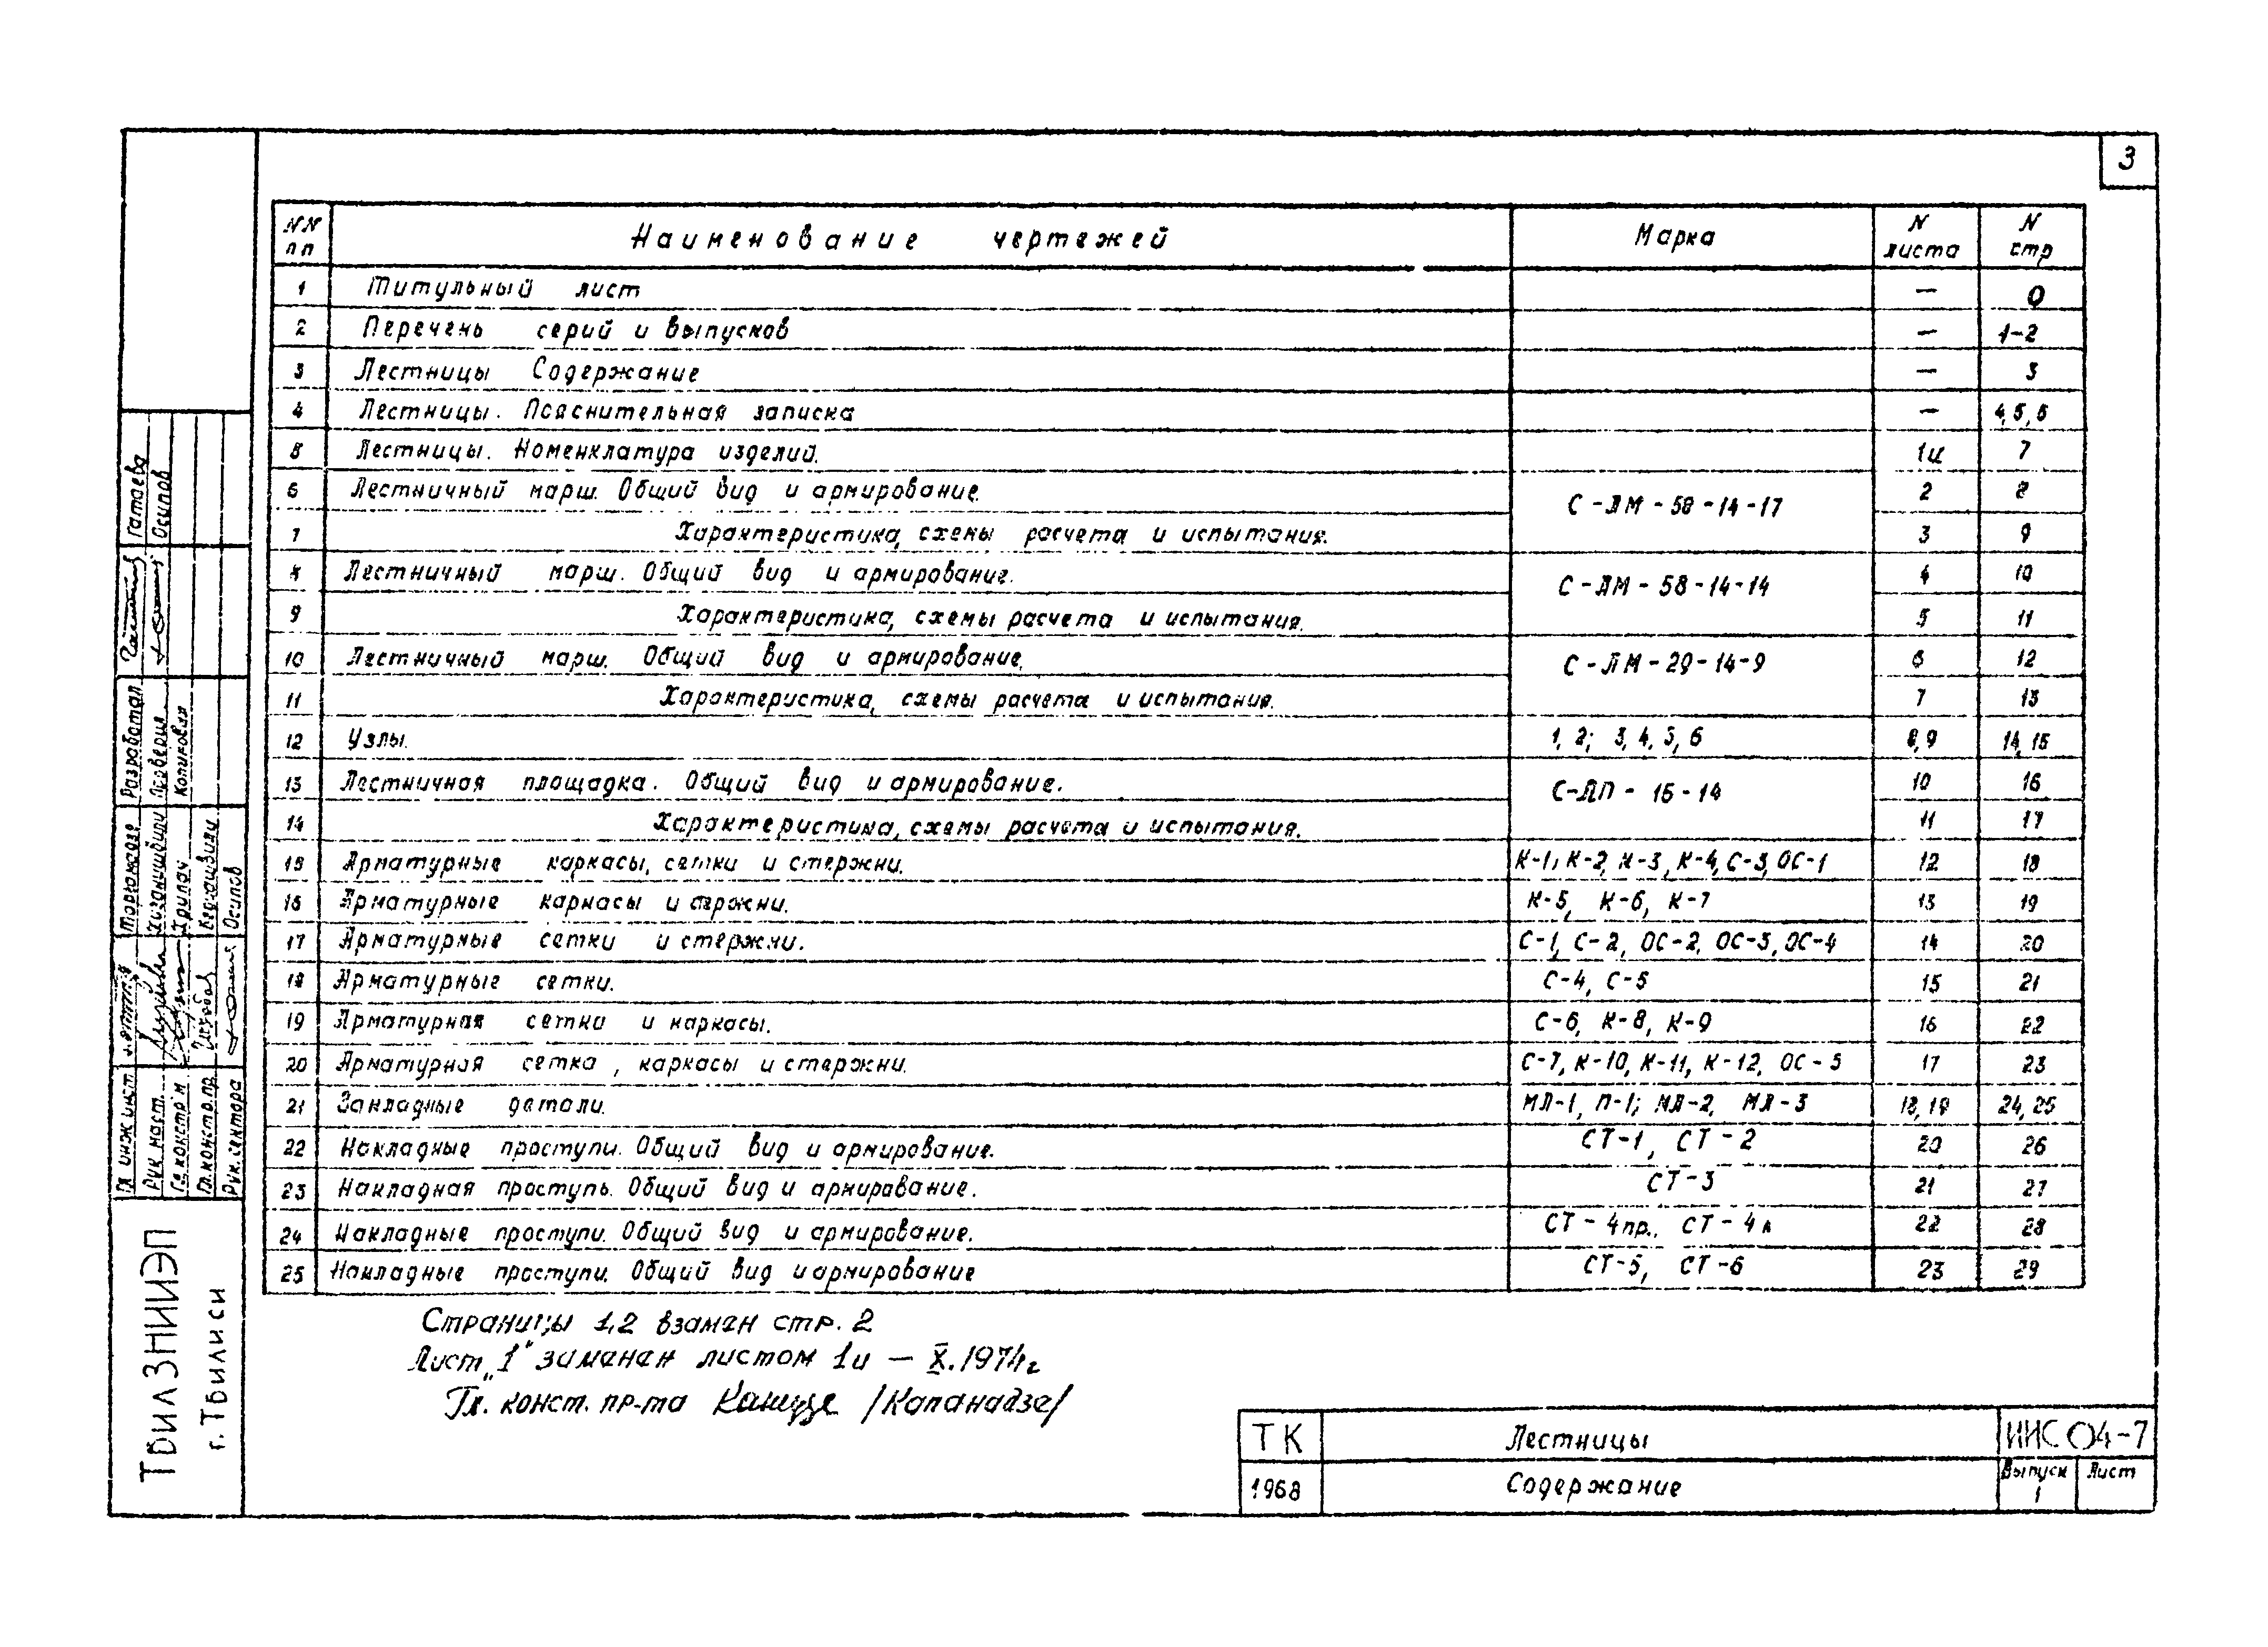 3
NN пп Наименование чертежей Марка N листа N стр
1 Титульный лист — 0
2 Перечень серий и выпусков — 1-2
3 Лестницы Содержание — 3
4 Лестницы. Пояснительная записка — 4,5,6
5 Лестницы. Номенклатура изделий. 1и 7
6 Лестничный марш. Общий вид и армирование. С-ЛМ-58-14-17 2 8
7 Характеристика, схемы расчета и испытания. 3 9
8 Лестничный марш. Общий вид и армирование. С-ЛМ-58-14-14 4 10
9 Характеристика, схемы расчета и испытания. 5 11
10 Лестничный марш. Общий вид и армирование. С-ЛМ-29-14-9 6 12
11 Характеристика, схемы расчета и испытания. 7 13
12 Узлы. 1, 2; 3, 4, 5, 6 8,9 14,15
13 Лестничная площадка. Общий вид и армирование. С-ЛП-16-14 10 16
14 Характеристика, схемы расчета и испытания. 11 17
15 Арматурные каркасы, сетки и стержни. К-1, К-2, К-3, К-4, С-3, ОС-1 12 18
16 Арматурные каркасы и стержни. К-5, К-6, К-7 13 19
17 Арматурные сетки и стержни. С-1, С-2, ОС-2, ОС-3, ОС-4 14 20
18 Арматурные сетки. С-4, С-5 15 21
19 Арматурная сетка и каркасы. С-6, К-8, К-9 16 22
20 Арматурная сетка, каркасы и стержни. С-7, К-10, К-11, К-12, ОС-5 17 23
21 Закладные детали. МЛ-1, П-1; МЛ-2, МЛ-3 18,19 24,25
22 Накладные проступи. Общий вид и армирование. СТ-1, СТ-2 20 26
23 Накладная проступь. Общий вид и армирование. СТ-3 21 27
24 Накладные проступи. Общий вид и армирование. СТ-4пр., СТ-4л 22 28
25 Накладные проступи. Общий вид и армирование СТ-5, СТ-6 23 29
Страницы 1,2 взамен стр. 2
Лист „1" заменен листом 1и — X.1974г
Гл. конст. пр-та /Капанадзе/
ТК Лестницы ИИС 04-7
1968 Содержание Выпуск 1 Лист
ТбилЗНИИЭП
г. Тбилиси
Гл инж инст.
Рук маст.
Гл.констр м
Гл.констр.пр.
Рук.сектора
Хрипач
Осипов
Разработал Гатаева
Осипов